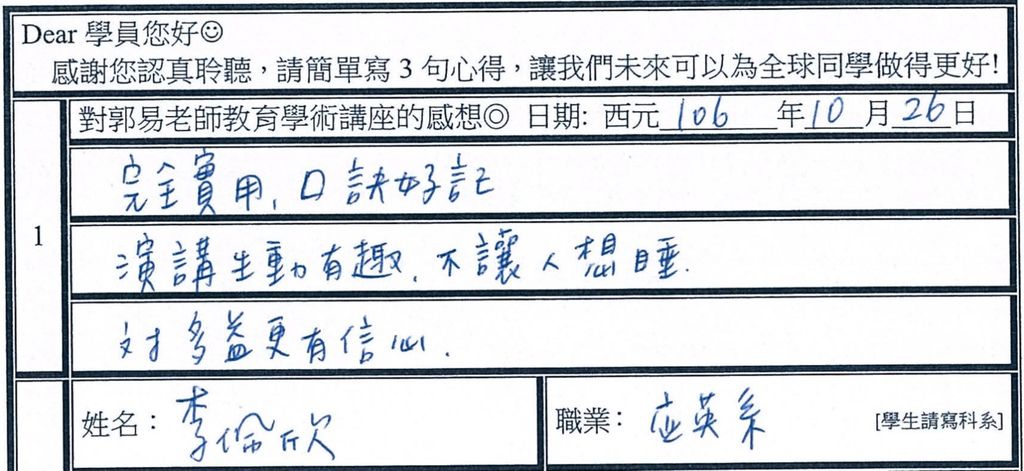 Dear 學員您好☺
感謝您認真聆聽，請簡單寫 3 句心得，讓我們未來可以為全球同學做得更好!
對郭易老師教育學術講座的感想◎ 日期: 西元 106 年 10 月 26 日
1
完全實用, 口訣好記
演講生動有趣, 不讓人想睡.
对多益更有信心.
姓名：李佩欣
職業：应英系 [學生請寫科系]